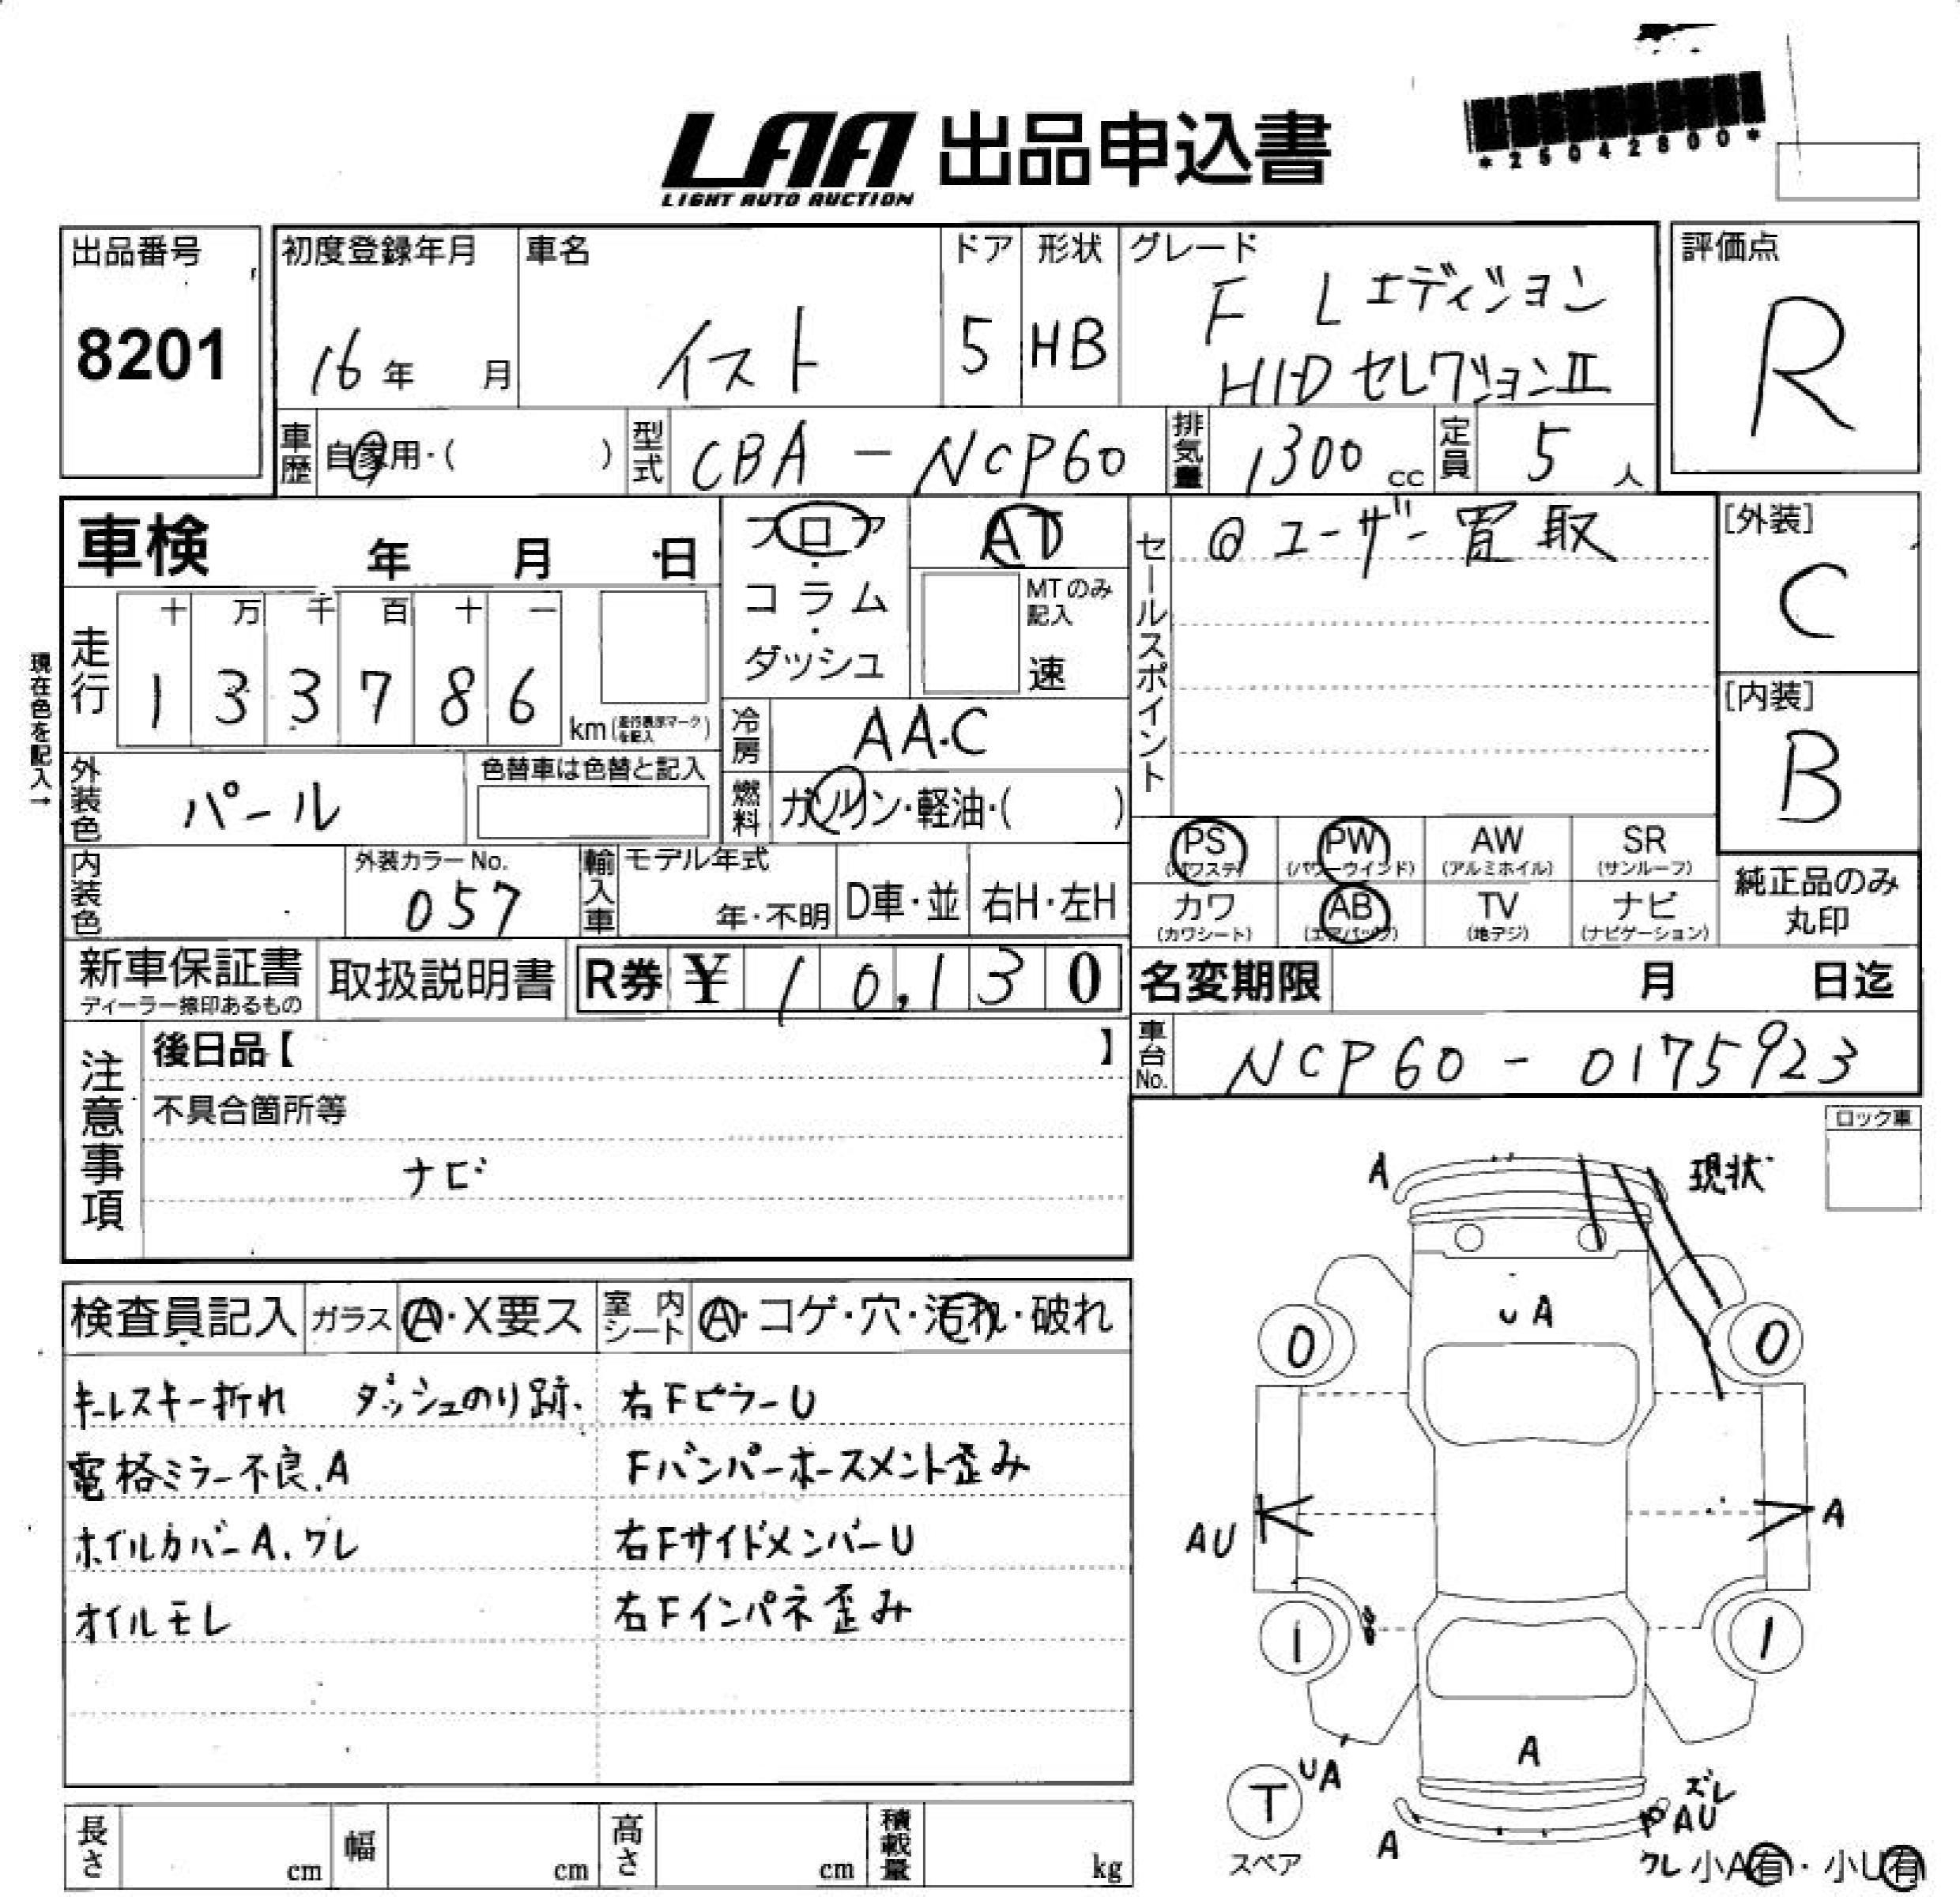 *25042800*
LAA 出品申込書
LIGHT AUTO AUCTION
出品番号
8201
初度登録年月
16年 月
車名
イスト
ドア
5
形状
HB
グレード
F Lエディション
HIDセレクションⅡ
評価点
R
車歴
自家用・( )
型式
CBA - NCP60
排気量
1300 cc
定員
5 人
車検 年 月 日
フロア
・
コラム
・
ダッシュ
AT
MTのみ
記入
速
セールスポイント
@ユーザー買取
[外装]
C
[内装]
B
現在色を記入→
走行
十 万 千 百 十 一
1 3 3 7 8 6
km(走行表示マークを記入)
冷房
AA.C
外装色
パール
色替車は色替と記入
燃料
ガソリン・軽油・( )
PS (パワステ)
PW (パワーウインド)
AW (アルミホイル)
SR (サンルーフ)
カワ (カワシート)
AB (エアバッグ)
TV (地デジ)
ナビ (ナビゲーション)
純正品のみ
丸印
内装色
外装カラーNo.
057
輸入車
モデル年式
年・不明
D車・並
右H・左H
新車保証書
ディーラー捺印あるもの
取扱説明書
R券 ¥ 10,130
名変期限 月 日迄
車台No.
NCP60 - 0175923
注意事項
後日品【 】
不具合箇所等
ナビ
ロック車
検査員記入
ガラス
A・X要ス
室内シート
A・コゲ・穴・汚れ・破れ
キーレスキー折れ ダッシュのり跡.
電格ミラー不良.A
ホイルカバーA.ワレ
オイルモレ
右FピラーU
Fバンパーホースメント歪み
右FサイドメンバーU
右Fインパネ歪み
A
現状
UA
0
0
AU
A
1
1
UA
A
T
スペア
A
ズレ
AU
ワレ
小A有・小U有
長さ cm
幅 cm
高さ cm
積載量 kg